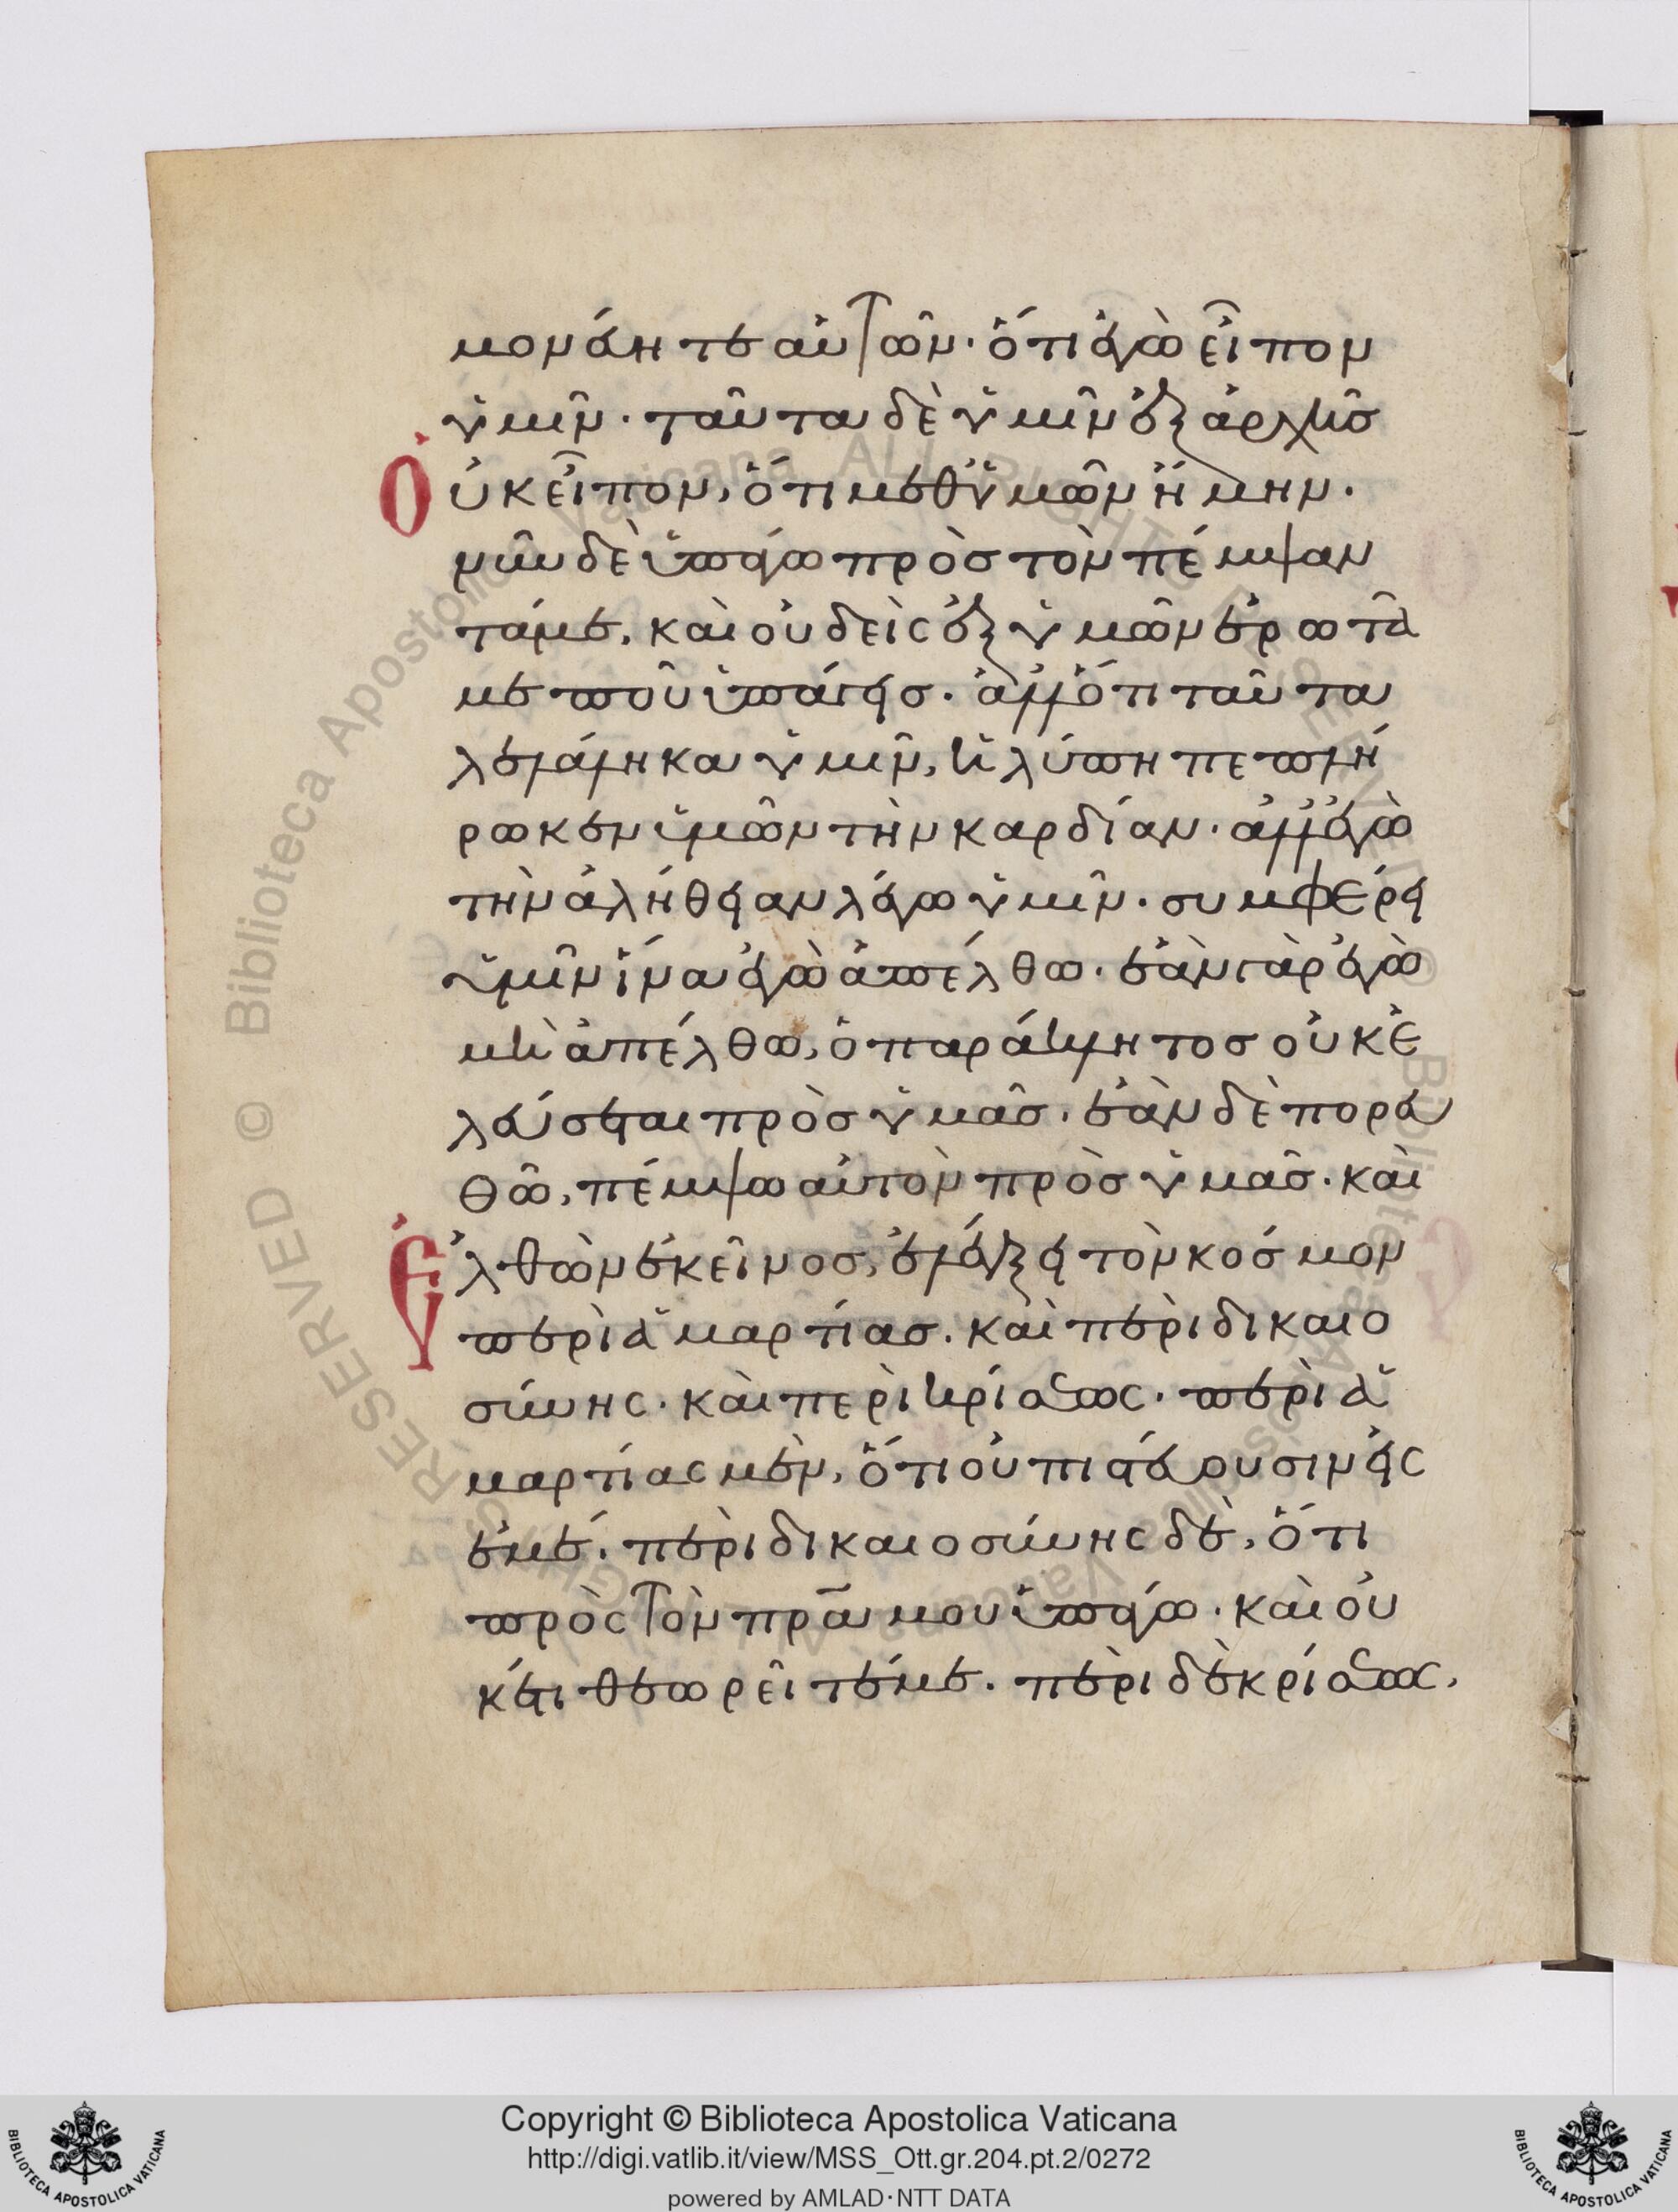 μονεύητε αὐτῶν· ὅτι ἐγὼ εἶπον
ὑμῖν· ταῦτα δὲ ὑμῖν ἐξ ἀρχῆσ
οὐκ εἶπον, ὅτι μεθ ὑμῶν ἤμην·
νῦν δὲ ὑπάγω πρὸσ τὸν πέμψαν
τά με, καὶ οὐδεὶς ἐξ ὑμῶν ἐρωτᾶ
με ποῦ ὑπάγεισ· ἀλλ ὅτι ταῦτα
λελάληκα ὑμῖν, ἡ λύπη πεπλή
ρωκεν ὑμῶν τὴν καρδίαν· ἀλλ ἐγὼ
τὴν ἀλήθειαν λέγω ὑμῖν· συμφέρει
ὑμῖν ἵνα ἐγὼ ἀπέλθω· ἐὰν γὰρ ἐγὼ
μὴ ἀπέλθω, ὁ παράκλητοσ οὐκ ἐ
λεύσεται πρὸσ ὑμᾶσ· ἐὰν δὲ πορευ
θῶ, πέμψω αὐτὸν πρὸσ ὑμᾶσ· καὶ
ἐλθὼν ἐκεῖνοσ, ἐλέγξει τὸν κόσμον
περὶ ἁμαρτίασ· καὶ περὶ δικαιο
σύνης· καὶ περὶ κρίσεως· περὶ ἁ
μαρτίας μὲν, ὅτι οὐ πιστεύουσιν εἰς
ἐμέ· περὶ δικαιοσύνης δὲ, ὅτι
πρὸς τὸν πρα μου ὑπάγω· καὶ οὐ
κέτι θεωρεῖτέ με· περὶ δὲ κρίσεως,
Copyright © Biblioteca Apostolica Vaticana
http://digi.vatlib.it/view/MSS_Ott.gr.204.pt.2/0272
powered by AMLAD·NTT DATA